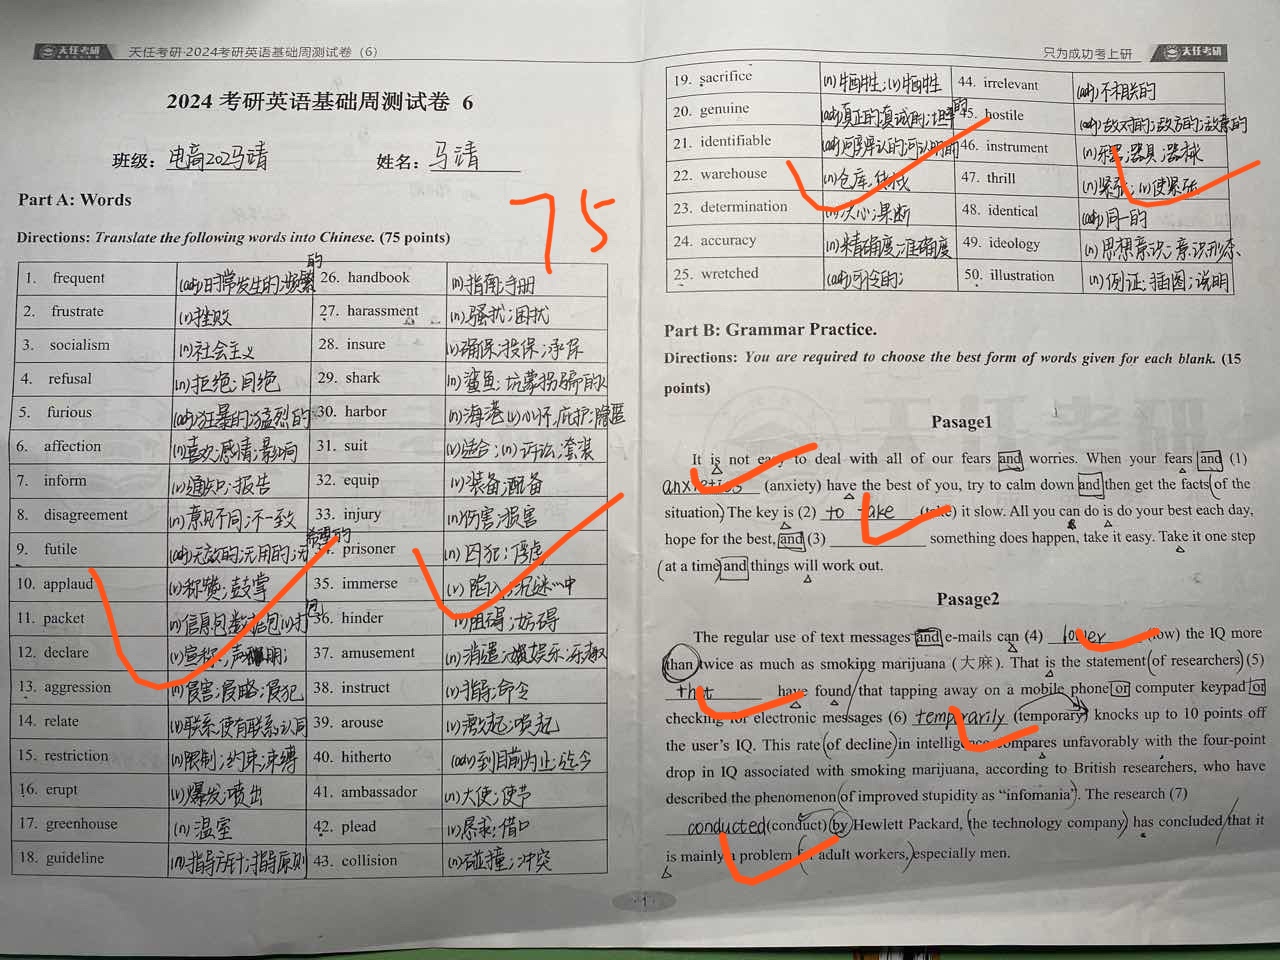 天任考研 天任考研·2024考研英语基础周测试卷（6）
2024 考研英语基础周测试卷 6
班级：电商202马靖 姓名：马靖
75
Part A: Words
Directions: Translate the following words into Chinese. (75 points)
1. frequent (adj)日常发生的;频繁的 26. handbook (n)指南;手册
2. frustrate (v)挫败 27. harassment (n)骚扰;困扰
3. socialism (n)社会主义 28. insure (v)确保;投保;承保
4. refusal (n)拒绝;回绝 29. shark (n)鲨鱼;坑蒙拐骗的人
5. furious (adj)狂暴的;猛烈的 30. harbor (n)海港 (v)心怀,庇护;隐匿
6. affection (n)喜欢;感情;影响 31. suit (v)适合;(n)诉讼;套装
7. inform (v)通知;报告 32. equip (v)装备;配备
8. disagreement (n)意见不同;不一致 33. injury (n)伤害;损害
9. futile (adj)无效的;无用的;无希望的 34. prisoner (n)囚犯;俘虏
10. applaud (v)称赞;鼓掌 35. immerse (v)陷入;沉迷…中
11. packet (n)信息包;数据包(v)打包 36. hinder (v)阻碍;妨碍
12. declare (v)宣称;声明; 37. amusement (n)消遣;娱乐;乐趣
13. aggression (n)侵害;侵略;侵犯 38. instruct (v)指导;命令
14. relate (v)联系;使有联系;认同 39. arouse (v)激起;唤起
15. restriction (n)限制;约束;束缚 40. hitherto (adv)到目前为止;迄今
16. erupt (v)爆发;喷出 41. ambassador (n)大使;使节
17. greenhouse (n)温室 42. plead (v)恳求;借口
18. guideline (n)指导方针;指导原则 43. collision (n)碰撞;冲突
只为成功考上研 天任考研
19. sacrifice (n)牺牲;(v)牺牲 44. irrelevant (adj)不相关的
20. genuine (adj)真正的;真诚的;坦率的 45. hostile (adj)敌对的;敌方的;敌意的
21. identifiable (adj)可辨认的;可认明的 46. instrument (n)乐器;器具;器械
22. warehouse (n)仓库; 47. thrill (n)紧张;(v)使紧张
23. determination (n)决心;果断 48. identical (adj)同一的
24. accuracy (n)精确度;准确度 49. ideology (n)思想意识;意识形态
25. wretched (adj)可怜的; 50. illustration (n)例证;插图;说明
Part B: Grammar Practice.
Directions: You are required to choose the best form of words given for each blank. (15
points)
Pasage1
It is not easy to deal with all of our fears and worries. When your fears and (1)
anxieties (anxiety) have the best of you, try to calm down and then get the facts of the
situation. The key is (2) to take (take) it slow. All you can do is do your best each day,
hope for the best, and (3) ________ something does happen, take it easy. Take it one step
at a time and things will work out.
Pasage2
The regular use of text messages and e-mails can (4) lower (low) the IQ more
than twice as much as smoking marijuana (大麻). That is the statement of researchers (5)
that have found that tapping away on a mobile phone or computer keypad or
checking for electronic messages (6) temprarily (temporary) knocks up to 10 points off
the user's IQ. This rate of decline in intelligence compares unfavorably with the four-point
drop in IQ associated with smoking marijuana, according to British researchers, who have
described the phenomenon of improved stupidity as “infomania”. The research (7)
conducted (conduct) by Hewlett Packard, the technology company, has concluded that it
is mainly a problem for adult workers, especially men.
·1·